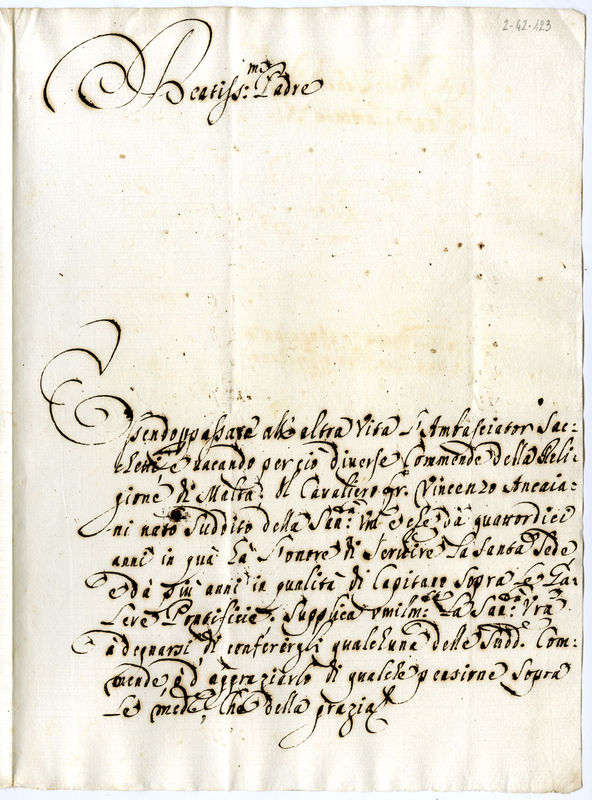 2-42-123
Beatiss:mo Padre
Essendo passato all'altra Vita l'Ambasciator Sac:
chetti, e vacando perciò diverse Commende della Reli:
gione di Malta. Il Cavaliero fr. Vincenzo Ancaia:
ni nato suddito della San:tà Vra e che da quattordici
anni in quà hà l'onore di servire la Santa Sede
e da più anni in qualità di Capitano sopra le Ga:
lere Pontificie. Supplica umilm:te la San:tà Vra
à degnarsi di conferirgli qualcheuna delle sudd:e Com:
mende ò d'aggraziarlo di qualche pensione sopra
le mede, Che della grazia